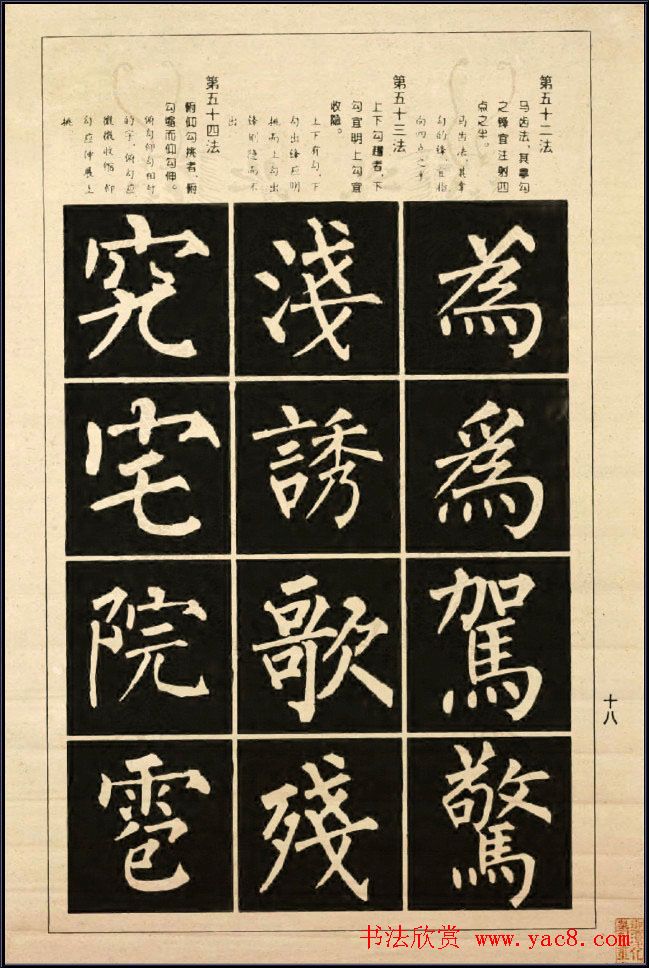 第五十二法
马齿法，其拏勾
之锋宜注射四
点之半。
马齿法，其拏
勾的锋宜指
向四点之半
為
爲
駕
驚
第五十三法
上下勾趯者，下
勾宜明上勾宜
收隐。
上下有勾，下
勾出锋应明
挑而上勾出
锋则隐而不
出
淺
誘
歌
殘
第五十四法
俯仰勾挑者，俯
勾缩而仰勾伸。
俯勾仰勾相对
的字，俯勾应
微微收缩仰
勾应伸展上
挑
究
宅
院
雹
十八
书法欣赏 www.yac8.com